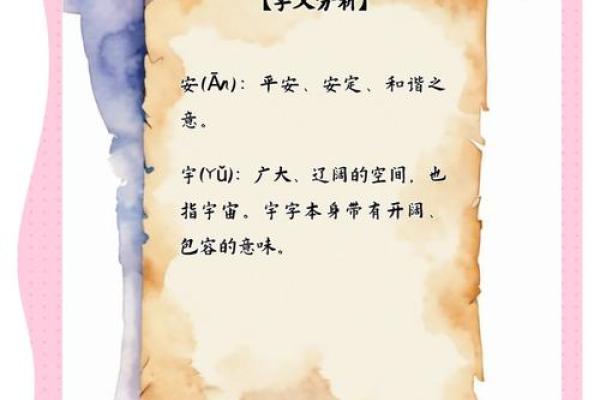 【字义分析】
安(Ān)：平安、安定、和谐之
意。
宇(Yǔ)：广大、辽阔的空间，也
指宇宙。宇字本身带有开阔、
包容的意味。